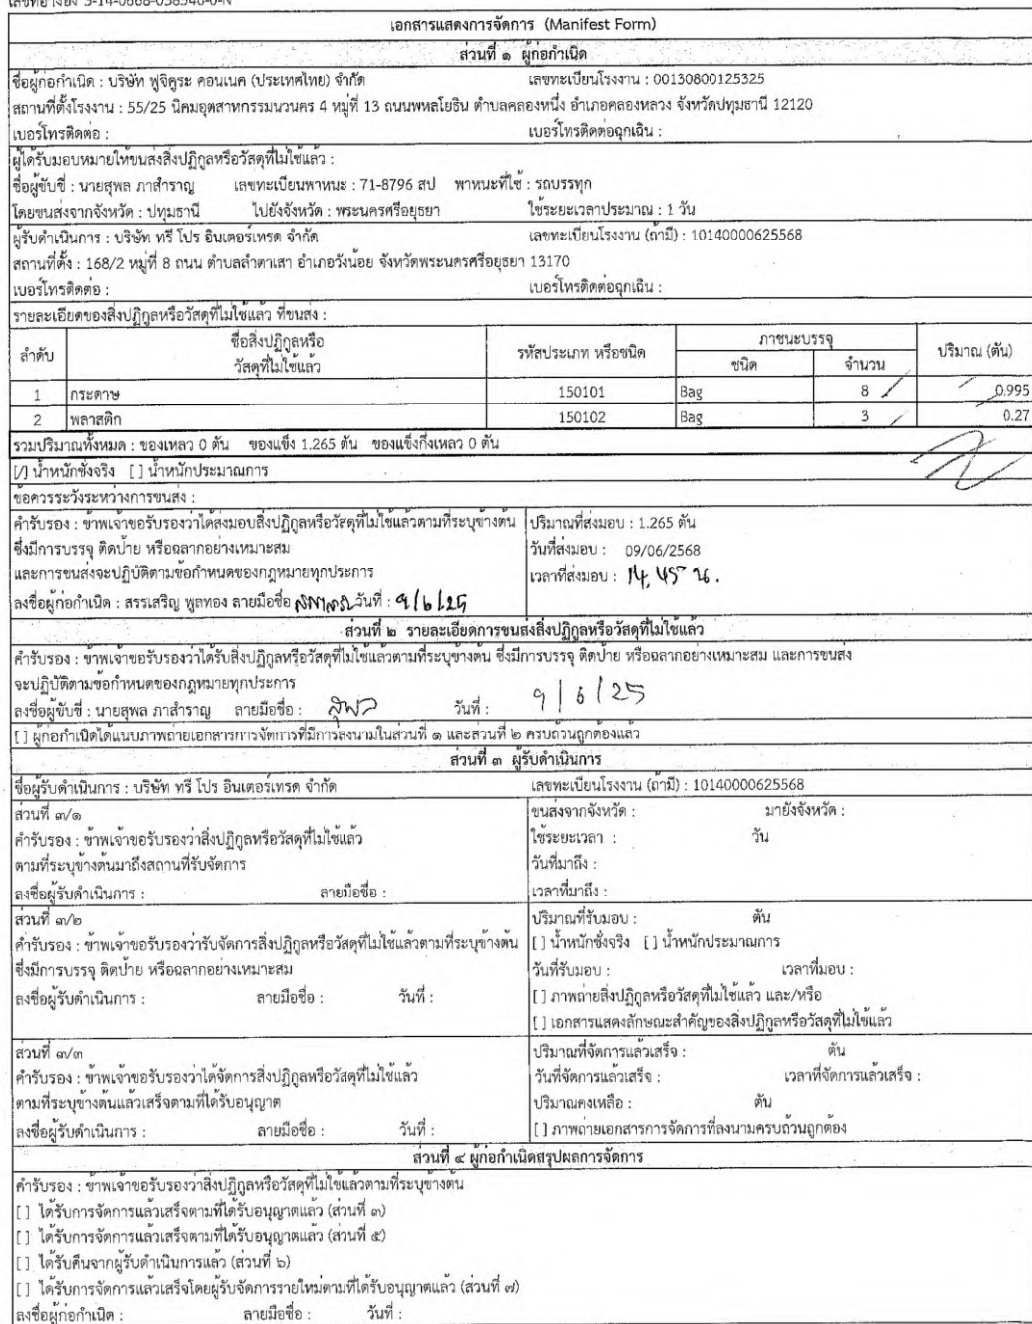 เลขที่อ้างอิง 3-14-0668-038540-0-N
เอกสารแสดงการจัดการ (Manifest Form)
ส่วนที่ ๑ ผู้ก่อกำเนิด
ชื่อผู้ก่อกำเนิด : บริษัท ฟูจิคูระ คอนเนค (ประเทศไทย) จำกัด เลขทะเบียนโรงงาน : 00130800125325
สถานที่ตั้งโรงงาน : 55/25 นิคมอุตสาหกรรมนวนคร 4 หมู่ที่ 13 ถนนพหลโยธิน ตำบลคลองหนึ่ง อำเภอคลองหลวง จังหวัดปทุมธานี 12120
เบอร์โทรติดต่อ : เบอร์โทรติดต่อฉุกเฉิน :
ผู้ได้รับมอบหมายให้ขนส่งสิ่งปฏิกูลหรือวัสดุที่ไม่ใช้แล้ว :
ชื่อผู้ขับขี่ : นายสุพล ภาสำราญ เลขทะเบียนพาหนะ : 71-8796 สป พาหนะที่ใช้ : รถบรรทุก
โดยขนส่งจากจังหวัด : ปทุมธานี ไปยังจังหวัด : พระนครศรีอยุธยา ใช้ระยะเวลาประมาณ : 1 วัน
ผู้รับดำเนินการ : บริษัท ทรี โปร อินเตอร์เทรด จำกัด เลขทะเบียนโรงงาน (ถ้ามี) : 10140000625568
สถานที่ตั้ง : 168/2 หมู่ที่ 8 ถนน ตำบลลำตาเสา อำเภอวังน้อย จังหวัดพระนครศรีอยุธยา 13170
เบอร์โทรติดต่อ : เบอร์โทรติดต่อฉุกเฉิน :
รายละเอียดของสิ่งปฏิกูลหรือวัสดุที่ไม่ใช้แล้ว ที่ขนส่ง :
ลำดับ ชื่อสิ่งปฏิกูลหรือ วัสดุที่ไม่ใช้แล้ว รหัสประเภท หรือชนิด ภาชนะบรรจุ ชนิด จำนวน ปริมาณ (ตัน)
1 กระดาษ 150101 Bag 8 0.995
2 พลาสติก 150102 Bag 3 0.27
รวมปริมาณทั้งหมด : ของเหลว 0 ตัน ของแข็ง 1.265 ตัน ของแข็งกึ่งเหลว 0 ตัน
[/] น้ำหนักชั่งจริง [ ] น้ำหนักประมาณการ
ข้อควรระวังระหว่างการขนส่ง :
คำรับรอง : ข้าพเจ้าขอรับรองว่าได้ส่งมอบสิ่งปฏิกูลหรือวัสดุที่ไม่ใช้แล้วตามที่ระบุข้างต้น ปริมาณที่ส่งมอบ : 1.265 ตัน
ซึ่งมีการบรรจุ ติดป้าย หรือฉลากอย่างเหมาะสม วันที่ส่งมอบ : 09/06/2568
และการขนส่งจะปฏิบัติตามข้อกำหนดของกฎหมายทุกประการ เวลาที่ส่งมอบ : 14,45 น.
ลงชื่อผู้ก่อกำเนิด : สรรเสริญ พูลทอง ลายมือชื่อ วันที่ : 9/6/25
ส่วนที่ ๒ รายละเอียดการขนส่งสิ่งปฏิกูลหรือวัสดุที่ไม่ใช้แล้ว
คำรับรอง : ข้าพเจ้าขอรับรองว่าได้รับสิ่งปฏิกูลหรือวัสดุที่ไม่ใช้แล้วตามที่ระบุข้างต้น ซึ่งมีการบรรจุ ติดป้าย หรือฉลากอย่างเหมาะสม และการขนส่ง
จะปฏิบัติตามข้อกำหนดของกฎหมายทุกประการ
ลงชื่อผู้ขับขี่ : นายสุพล ภาสำราญ ลายมือชื่อ : สุพล วันที่ : 9/6/25
[ ] ผู้ก่อกำเนิดได้แนบภาพถ่ายเอกสารการจัดการที่มีการลงนามในส่วนที่ ๑ และส่วนที่ ๒ ครบถ้วนถูกต้องแล้ว
ส่วนที่ ๓ ผู้รับดำเนินการ
ชื่อผู้รับดำเนินการ : บริษัท ทรี โปร อินเตอร์เทรด จำกัด เลขทะเบียนโรงงาน (ถ้ามี) : 10140000625568
ส่วนที่ ๓/๑ ขนส่งจากจังหวัด : มายังจังหวัด :
คำรับรอง : ข้าพเจ้าขอรับรองว่าสิ่งปฏิกูลหรือวัสดุที่ไม่ใช้แล้ว ใช้ระยะเวลา : วัน
ตามที่ระบุข้างต้นมาถึงสถานที่รับจัดการ วันที่มาถึง :
ลงชื่อผู้รับดำเนินการ : ลายมือชื่อ : เวลาที่มาถึง :
ส่วนที่ ๓/๒ ปริมาณที่รับมอบ : ตัน
คำรับรอง : ข้าพเจ้าขอรับรองว่ารับจัดการสิ่งปฏิกูลหรือวัสดุที่ไม่ใช้แล้วตามที่ระบุข้างต้น [ ] น้ำหนักชั่งจริง [ ] น้ำหนักประมาณการ
ซึ่งมีการบรรจุ ติดป้าย หรือฉลากอย่างเหมาะสม วันที่รับมอบ : เวลาที่มอบ :
ลงชื่อผู้รับดำเนินการ : ลายมือชื่อ : วันที่ : [ ] ภาพถ่ายสิ่งปฏิกูลหรือวัสดุที่ไม่ใช้แล้ว และ/หรือ
[ ] เอกสารแสดงลักษณะสำคัญของสิ่งปฏิกูลหรือวัสดุที่ไม่ใช้แล้ว
ส่วนที่ ๓/๓ ปริมาณที่จัดการแล้วเสร็จ : ตัน
คำรับรอง : ข้าพเจ้าขอรับรองว่าได้จัดการสิ่งปฏิกูลหรือวัสดุที่ไม่ใช้แล้ว วันที่จัดการแล้วเสร็จ : เวลาที่จัดการแล้วเสร็จ :
ตามที่ระบุข้างต้นแล้วเสร็จตามที่ได้รับอนุญาต ปริมาณคงเหลือ : ตัน
ลงชื่อผู้รับดำเนินการ : ลายมือชื่อ : วันที่ : [ ] ภาพถ่ายเอกสารการจัดการที่ลงนามครบถ้วนถูกต้อง
ส่วนที่ ๔ ผู้ก่อกำเนิดสรุปผลการจัดการ
คำรับรอง : ข้าพเจ้าขอรับรองว่าสิ่งปฏิกูลหรือวัสดุที่ไม่ใช้แล้วตามที่ระบุข้างต้น
[ ] ได้รับการจัดการแล้วเสร็จตามที่ได้รับอนุญาตแล้ว (ส่วนที่ ๓)
[ ] ได้รับการจัดการแล้วเสร็จตามที่ได้รับอนุญาตแล้ว (ส่วนที่ ๕)
[ ] ได้รับคืนจากผู้รับดำเนินการแล้ว (ส่วนที่ ๖)
[ ] ได้รับการจัดการแล้วเสร็จโดยผู้รับจัดการรายใหม่ตามที่ได้รับอนุญาตแล้ว (ส่วนที่ ๗)
ลงชื่อผู้ก่อกำเนิด : ลายมือชื่อ : วันที่ :